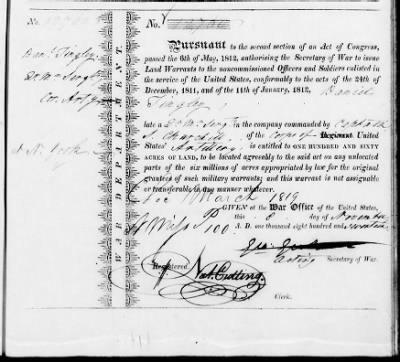 No.
Pursuant to the second section of an Act of Congress,
passed the 6th of May, 1812, authorising the Secretary of War to issue
Land Warrants to the noncommissioned Officers and Soldiers enlisted in
the service of the United States, conformably to the acts of the 24th of
December, 1811, and of the 11th of January, 1812, Daniel
Tingley
late a in the company commanded by Captain
S. Churchill of the Corps of Regiment United
States' Artillery is entitled to ONE HUNDRED AND SIXTY
ACRES OF LAND, to be located agreeably to the said act on any unlocated
parts of the six millions of acres appropriated by law for the original
grantees of such military warrants; and this warrant is not assignable
or transferable in any manner whatever.
March 1819
GIVEN at the War Office of the United States,
this 8 day of November
A. D. one thousand eight hundred and seventeen
Acting Secretary of War.
Registered Nat. Cutting
Clerk.
Danl. Tingley
WAR DEPARTMENT.